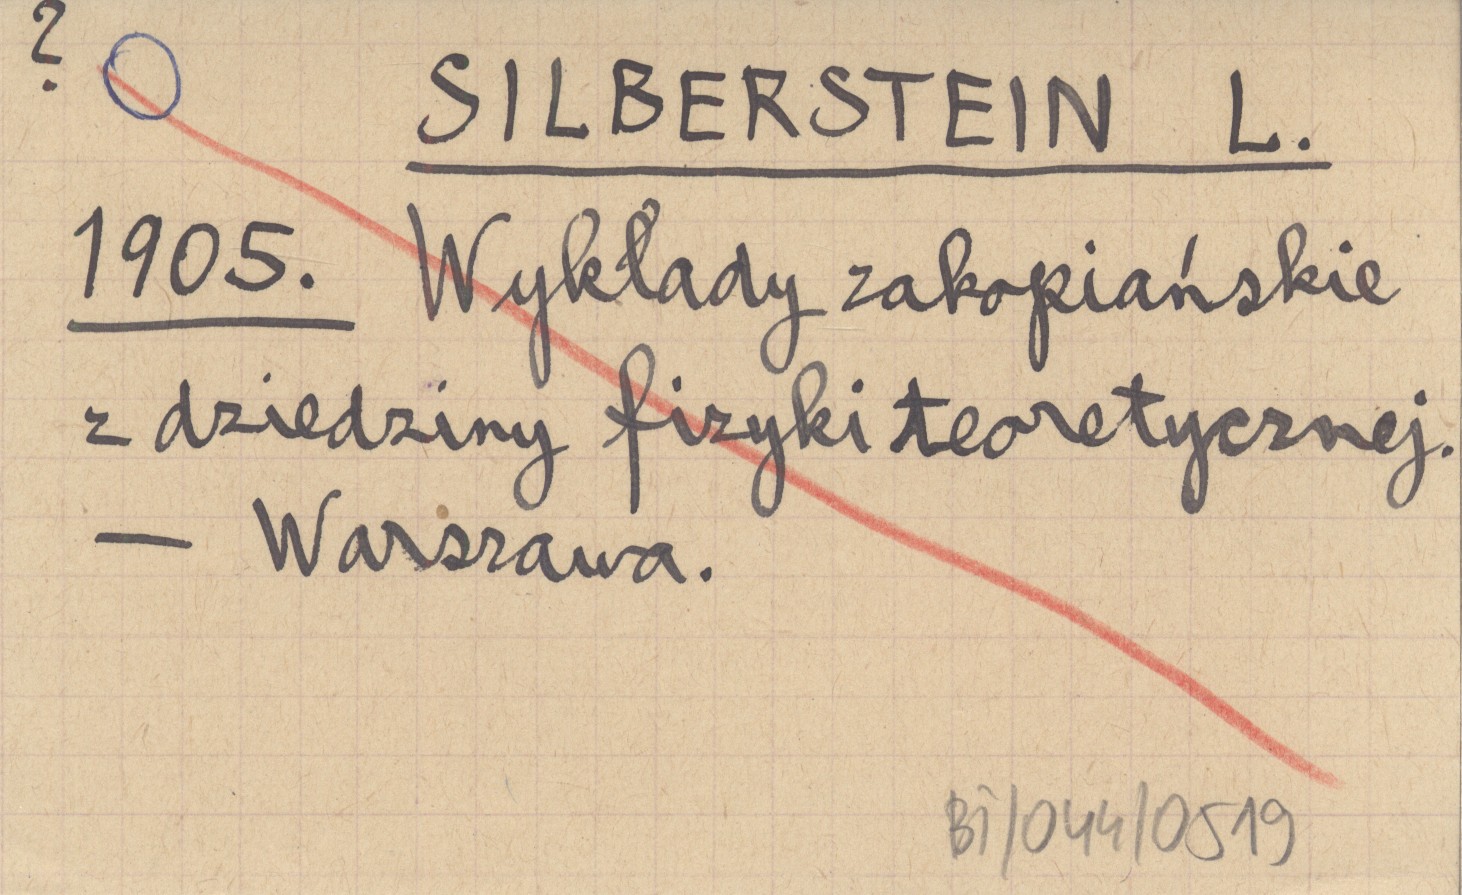 ?
SILBERSTEIN L.
1905. Wykłady zakopiańskie
z dziedziny fizyki teoretycznej.
— Warszawa.
BI/044/0519